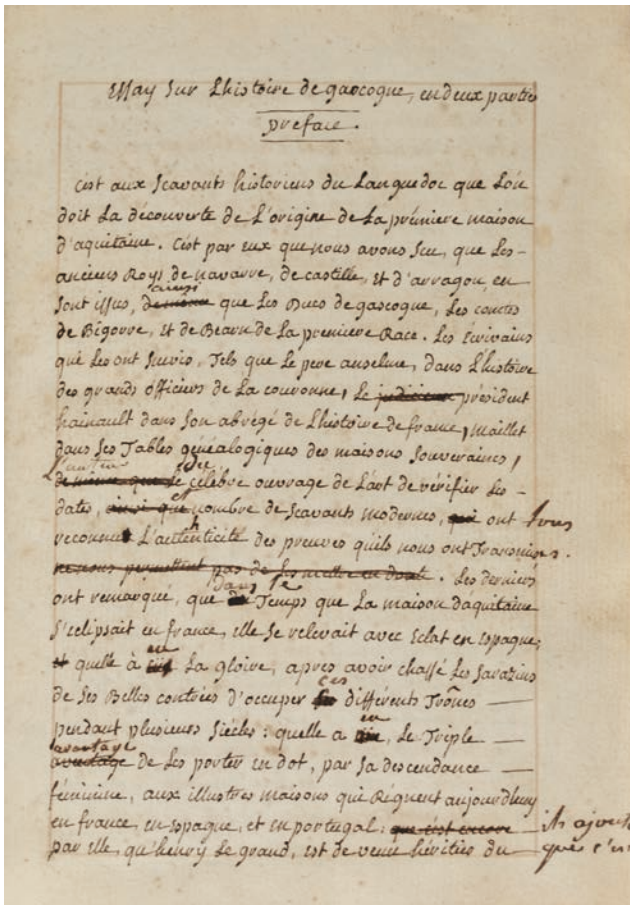 Essay sur L'histoire de gascogne, en deux parties
preface.
C'est aux scavants historiens du Languedoc que L'on
doit La découverte de L'origine de La prémiere maison
d'aquitaine. C'est par eux que nous avons sceu, que Les
anciens Roys de navarre, de castille, et d'arragon, en
ainsi
sont issus, de même que Les Ducs de gascogne, Les comtes
de Bigorre, et de Bearn de La premiere Race. Les Ecrivains
qui Les ont suivis, Tels que Le pere anselme, dans L'histoire
des grands officiers de La couronne, Le judicieux président
hainault dans son abrégé de L'histoire de france, maillet
dans ses Tables généalogiques des maisons souveraines,
L'auteur du
de même que le célébre ouvrage de L'art de vérifier Les
et
dates, ainsi que nombre de scavants modernes, qui ont tous
reconnu L'authenticité des preuves qu'ils nous ont Transmises.
ne nous permettent pas de les mettre en doute. Les derniers
Dans le
ont remarqué, que Temps que La maison d'aquitaine
S'eclipsait en france, elle se relevait avec Eclat en Espagne;
eu
et quelle à La gloire, apres avoir chassé Les Sarazins
ces
de ses Belles contrées d'occuper différents Trônes
pendant plusieurs siécles: quelle a
eu
, Le Triple
avantage
avantage de Les porter en dot, par sa descendance
féminine, aux illustres maisons qui Régnent aujourd'huy
en france, en espagne, et en portugal; que c'est encore ils ajoutent
par elle, qu'henry Le grand, est devenu héritier du que c'est